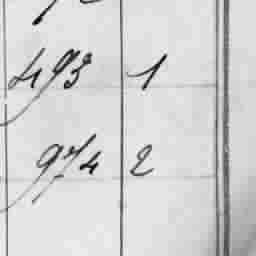 493 1
974 2